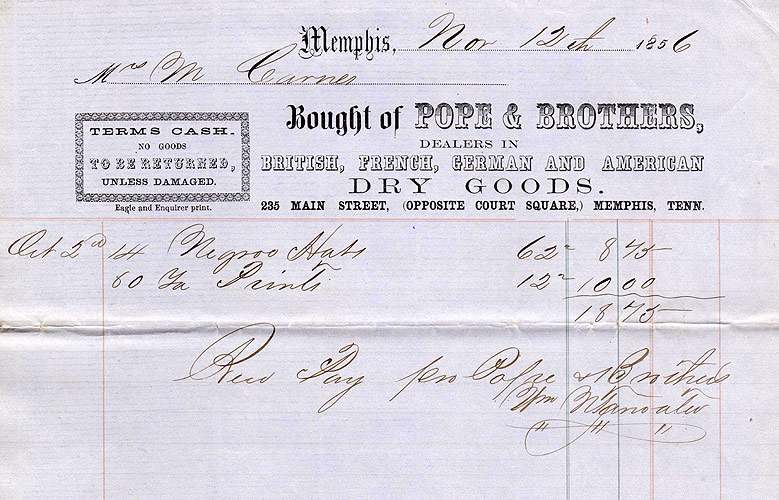 Memphis, Nov 12th 1856
Mrs M Carnes
Bought of POPE & BROTHERS,
DEALERS IN
BRITISH, FRENCH, GERMAN AND AMERICAN
DRY GOODS.
235 MAIN STREET, (OPPOSITE COURT SQUARE,) MEMPHIS, TENN.
TERMS CASH.
NO GOODS
TO BE RETURNED,
UNLESS DAMAGED.
Eagle and Enquirer print.
Oct 2d 14 Negroo Hats 62 8 75
80 Prints 12 10 00
18 75
Recd Pay pro Pope & Brothers
Wm